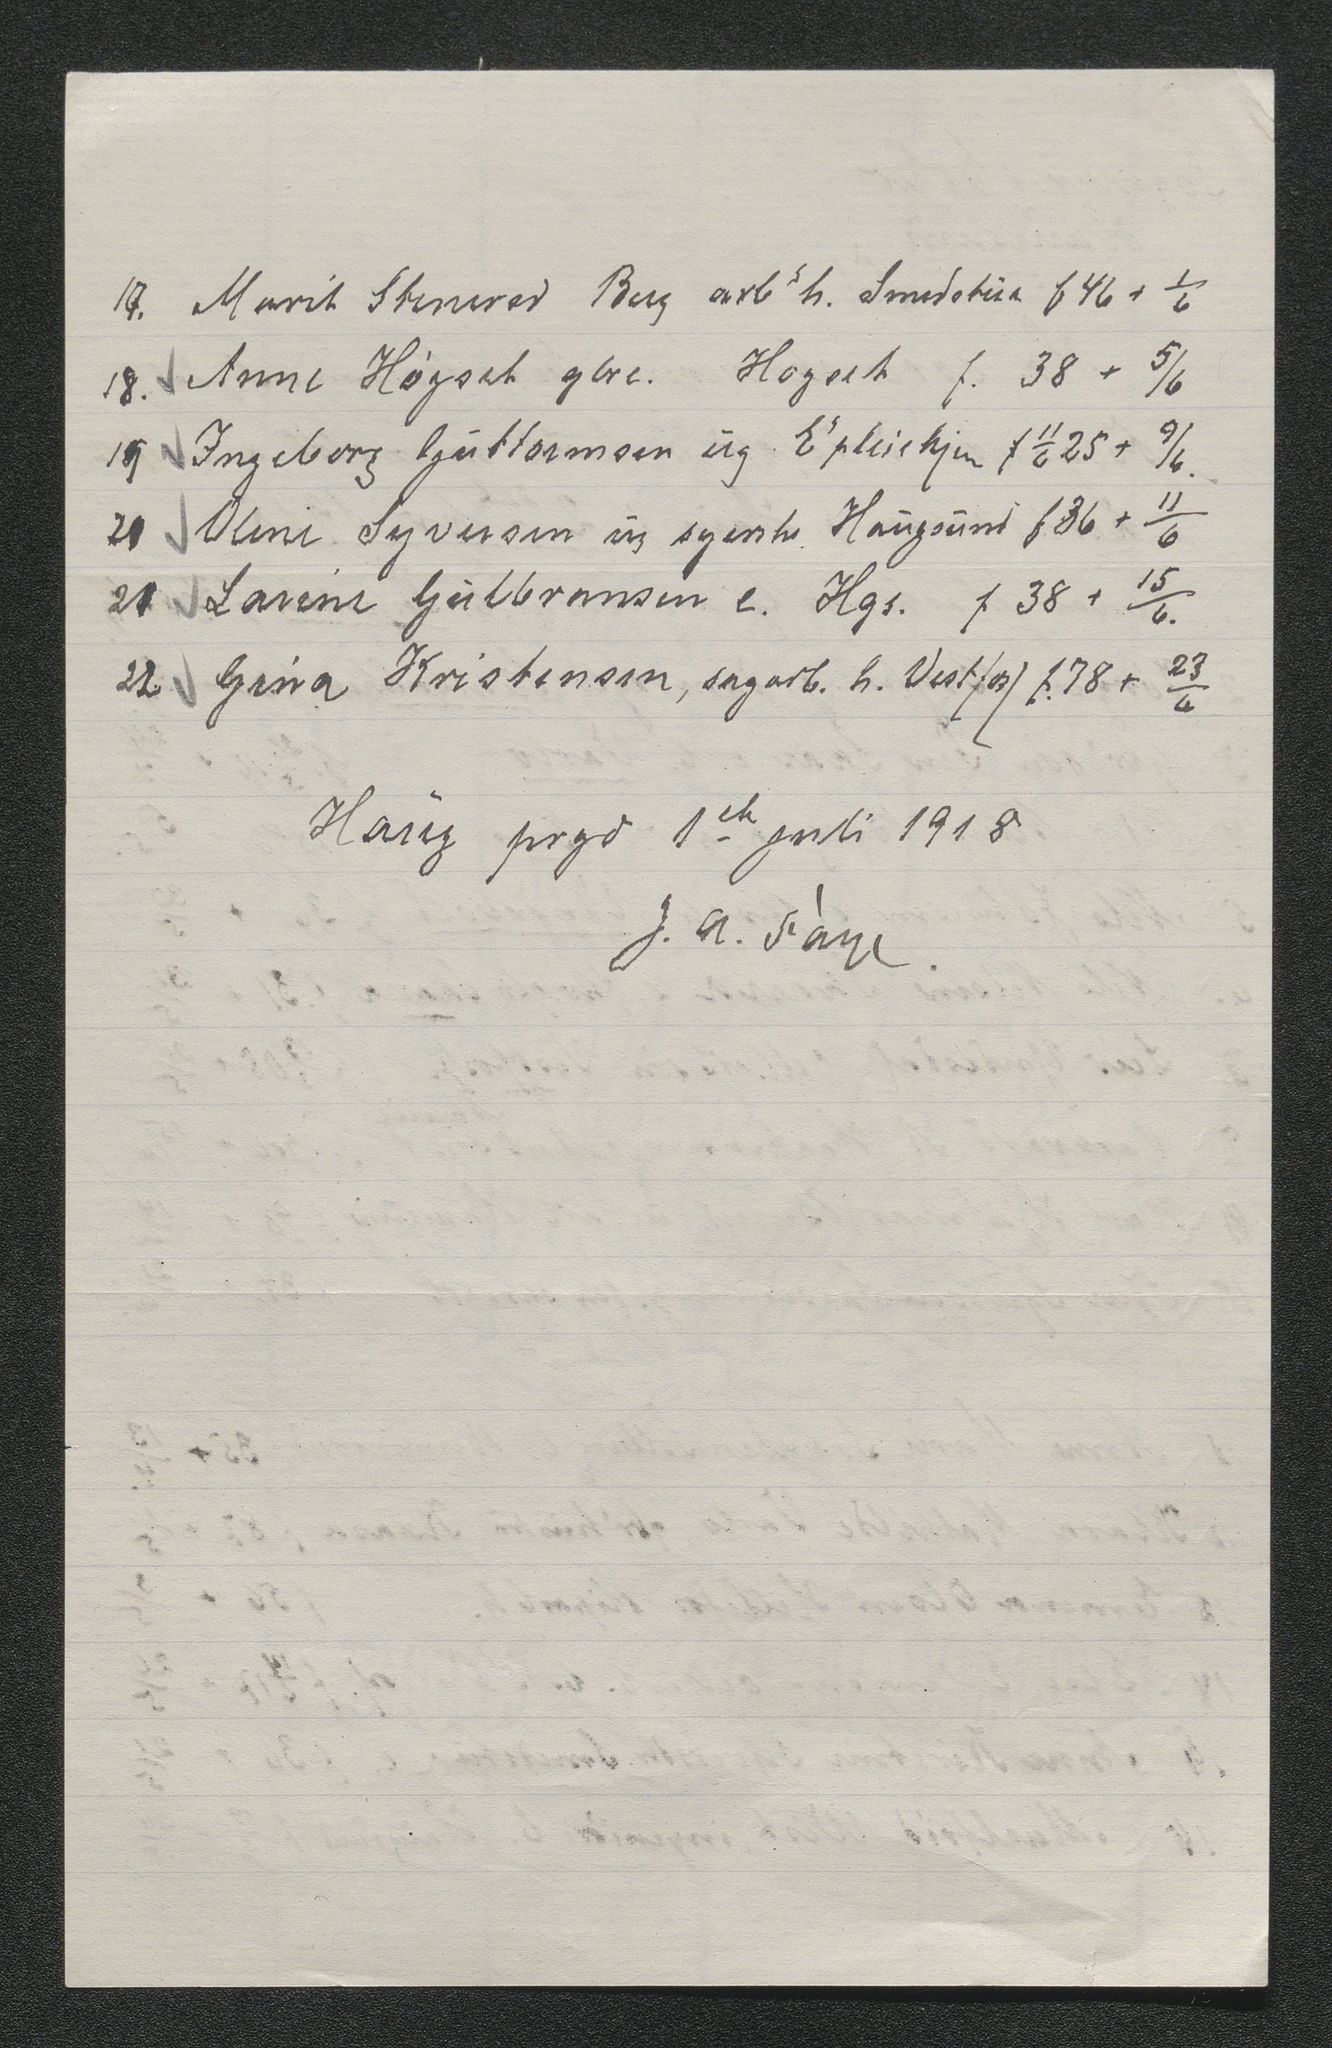 17. Marit Stenerød Berg arbs h. Smedstua f 46 + 1/6
18. Anne Høgset gbre. Hogset f. 38 + 5/6
19 Ingeborg Guttormsen ug f 11/6 25 + 9/6.
20 Oline Syversen ug syerske. Haugsund f 36 + 11/6
21 Lavine Gulbransen e. Hgs. f 38 + 15/6.
22 Gina Kristensen, sagarb. h. Vestfos f. 78 + 23/6
Haug prgd 1ste juli 1918
J. A. Faye.